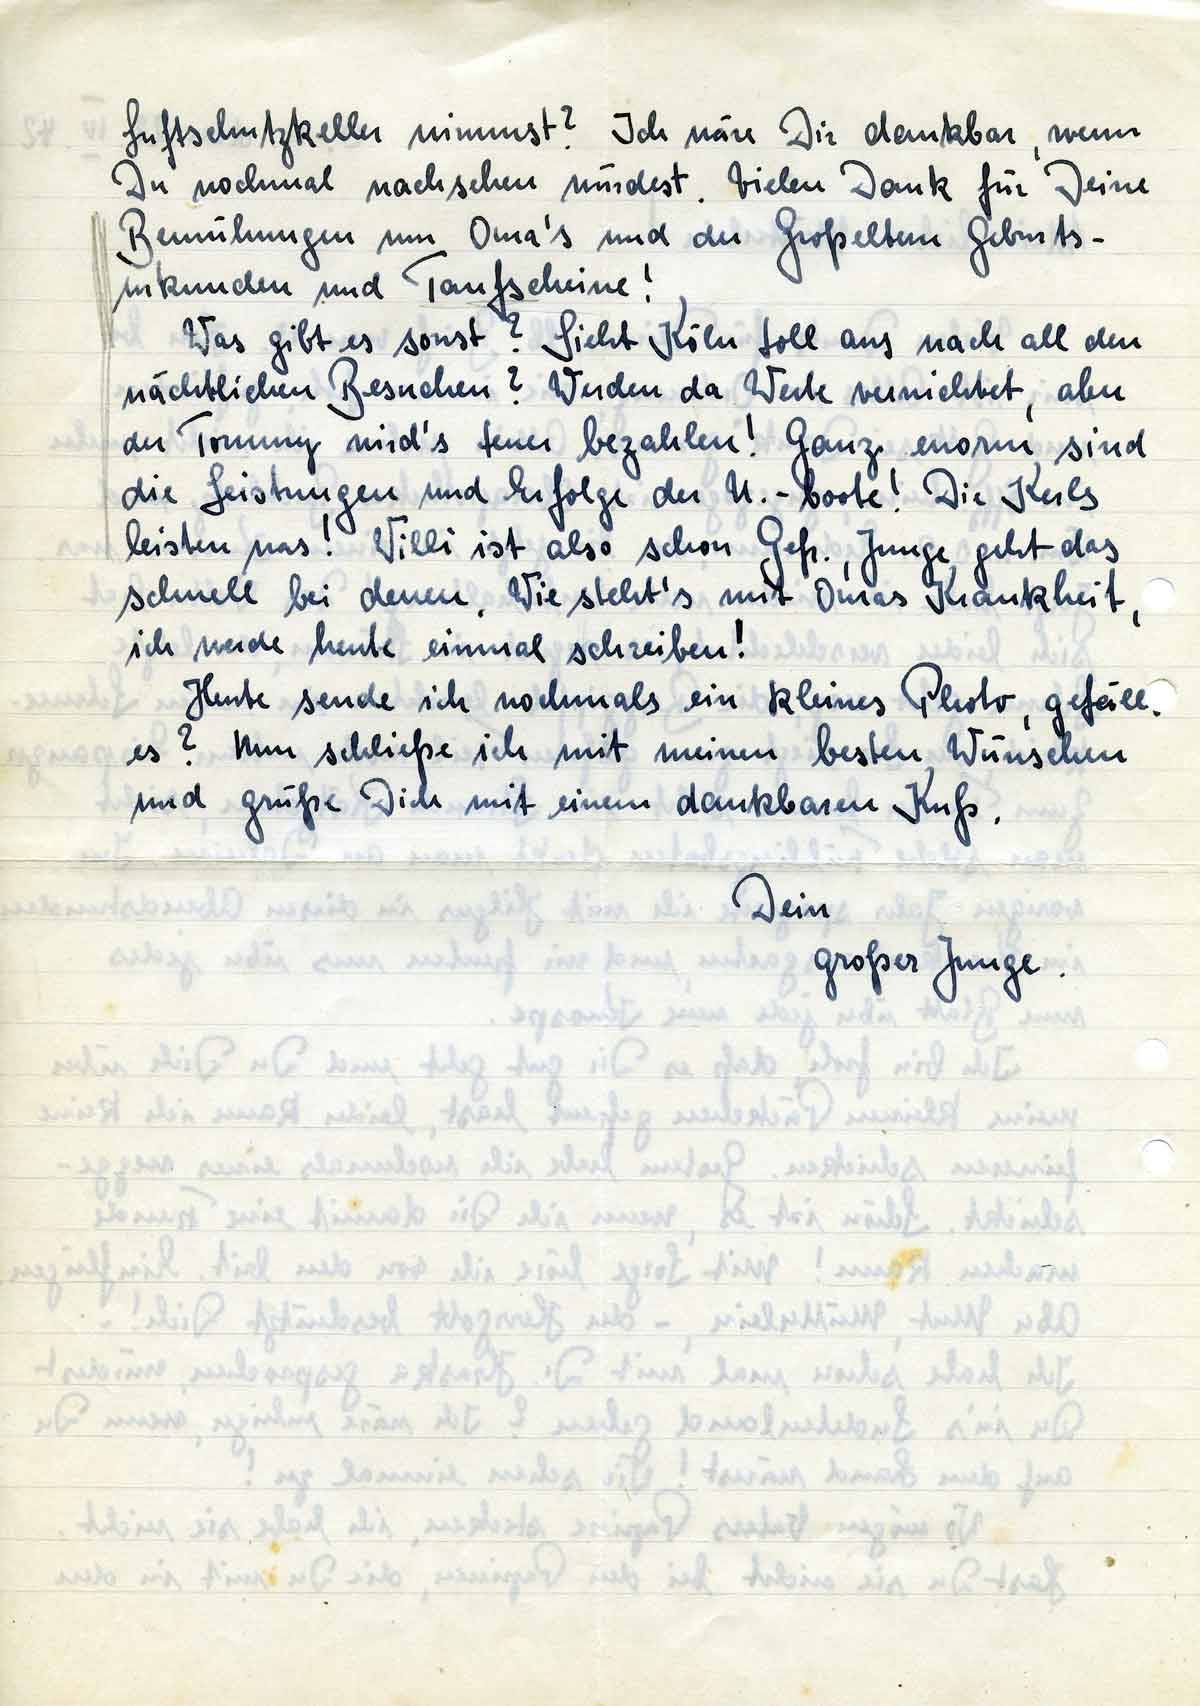 Luftschutzkeller nimmst? Ich wäre Dir dankbar, wenn
Du nochmal nachsehen würdest. Vielen Dank für Deine
Bemühungen um Oma's und der Großeltern Geburts-
urkunden und Taufscheine!
Was gibt es sonst? Sieht Köln toll aus nach all den
nächtlichen Besuchen? Werden da Werte vernichtet, aber
der Tommy wird's teuer bezahlen! Ganz enorm sind
die Leistungen und Erfolge der U.-boote! Die Kerls
leisten was! Willi ist also schon Gefr., Junge geht das
schnell bei denen. Wie steht's mit Omas Krankheit,
ich werde heute einmal schreiben!
Heute sende ich nochmals ein kleines Photo, gefäll.
es? Nun schließe ich mit meinen besten Wünschen
und grüße Dich mit einem dankbaren Kuß.
Dein
großer Junge.